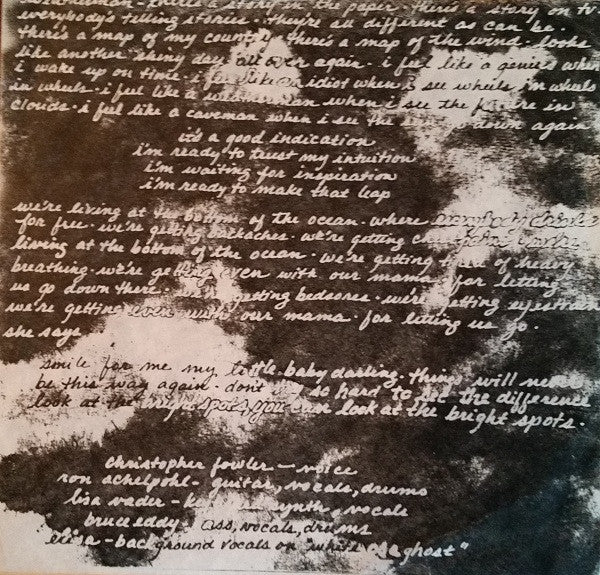 there's a story in the paper. there's a story on tv.
everybody's telling stories. they're all different as can be.
there's a map of my country. there's a map of the wind. looks
like another shiny day all over again. i feel like a genius when
i wake up on time. i feel like an idiot when i see wheels in wheels
in wheels. i feel like a when i see the in
clouds. i feel like a caveman when i see the down again
it's a good indication
i'm ready to trust my intuition
i'm waiting for inspiration
i'm ready to make that leap
we're living at the bottom of the ocean. where
for free. we're getting backaches. we're getting
living at the bottom of the ocean. we're getting of heavy
breathing. we're getting even with our mama for letting
us go down there. getting bedsores. we're getting eyestrain
we're getting even with our mama. for letting us go.
she says
smile for me my little baby darling. things will never
be this way again. don't so hard to see the difference
look at the you can look at the bright spots.
christopher fowler - voice
ron achelpohl - guitar, vocals, drums
lisa vader - synth, vocals
bruce eddy - vocals, drums
elisa - background vocals on " of a ghost"